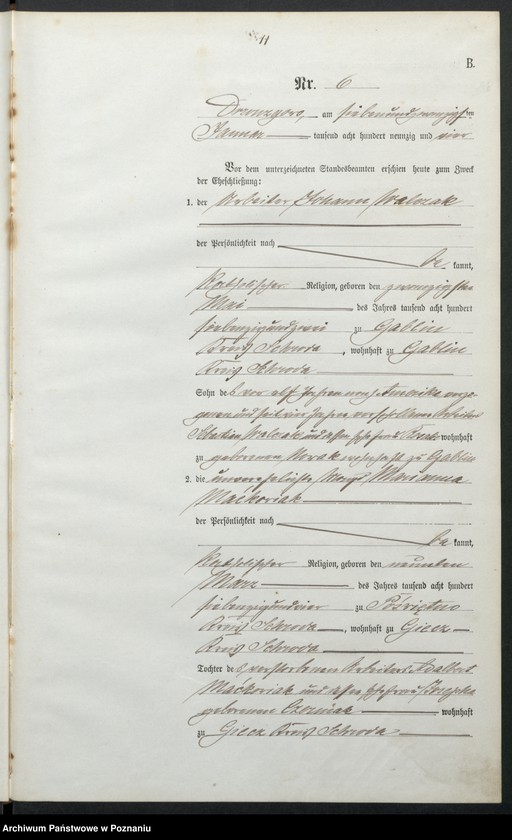 11
B.
Nr. 6
am siebenundzwanzigsten
Januar tausend acht hundert neunzig und vier
Vor dem unterzeichneten Standesbeamten erschien heute zum Zweck
der Eheschließung:
1. der Arbeiter Johann Walczak
der Persönlichkeit nach
be kannt,
katholischer Religion, geboren den zwanzigsten
Mai des Jahres tausend acht hundert
siebenzigundzwei zu Gablin
Kreis Schroda, wohnhaft zu Gablin
Kreis Schroda
Sohn des vor elf Jahren nach Amerika
und seit vier Jahren verschollenen Arbeiters
Walczak und dessen Ehefrau wohnhaft
zu geborenen Nowak wohnhaft zu Gablin
2. die unverehelichte Magd Marianna
Maćkowiak
der Persönlichkeit nach
be kannt,
katholischer Religion, geboren den neunten
März des Jahres tausend acht hundert
siebenzigundvier zu Pośriętno
Kreis Schroda, wohnhaft zu Giecz
Kreis Schroda
Tochter des verstorbenen Arbeiters Adalbert
Maćkowiak und dessen Ehefrau Jozefka
geborenen wohnhaft
zu Giecz Kreis Schroda
Archiwum Państwowe w Poznaniu